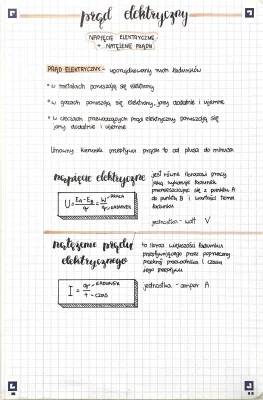 prąd elektryczny
NAPIĘCIE ELEKTRYCZNE
+ NATĘŻENIE PRĄDU
PRĄD ELEKTRYCZNY - uporządkowany ruch ładunków
* w metalach poruszają się elektrony
* w gazach poruszają się elektrony, jony dodatnie i ujemne
* w cieczach przewodzących prąd elektryczny poruszają się
jony dodatnie i ujemne
Umowny kierunek przepływu prądu to od plusa do minusa
napięcie elektryczne
U = EA-EB / q = W / q
PRACA
ŁADUNEK
jest równe ilorazowi pracy
jaką wykonuje ładunek
przemieszczając się z punktu A
do punktu B i wartości tego
ładunku
jednostka - wolt V
natężenie prądu
elektrycznego
I = q / t
ŁADUNEK
CZAS
to iloraz wielkości ładunku
przepływającego przez poprzeczny
przekrój przewodnika i czasu
jego przepływu
jednostka - amper A